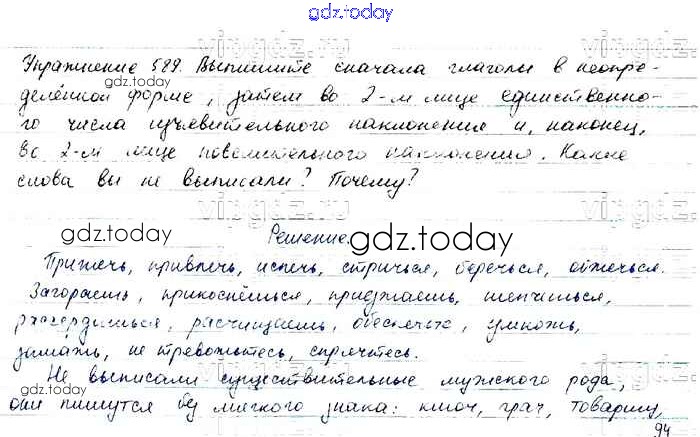 gdz.today
Упражнение 589. Выпишите сначала глаголы в неопре-
gdz.today
делённой форме, затем во 2-м лице единственно-
го числа изъявительного наклонения и, наконец,
во 2-м лице повелительного наклонения. Какие
слова вы не выписали? Почему?
gdz.today
Решение.
gdz.today
Прилечь, привлечь, испечь, стричься, беречься, обжечься.
Загораешь, прикоснёшься, приезжаешь,
gdz.today
расчищаешь, умножь,
не тревожьтесь, спрячьтесь.
gdz.today
Не выписали существительные мужского рода,
gdz.today
они пишутся без мягкого знака: ключ, грач, товарищ,
94